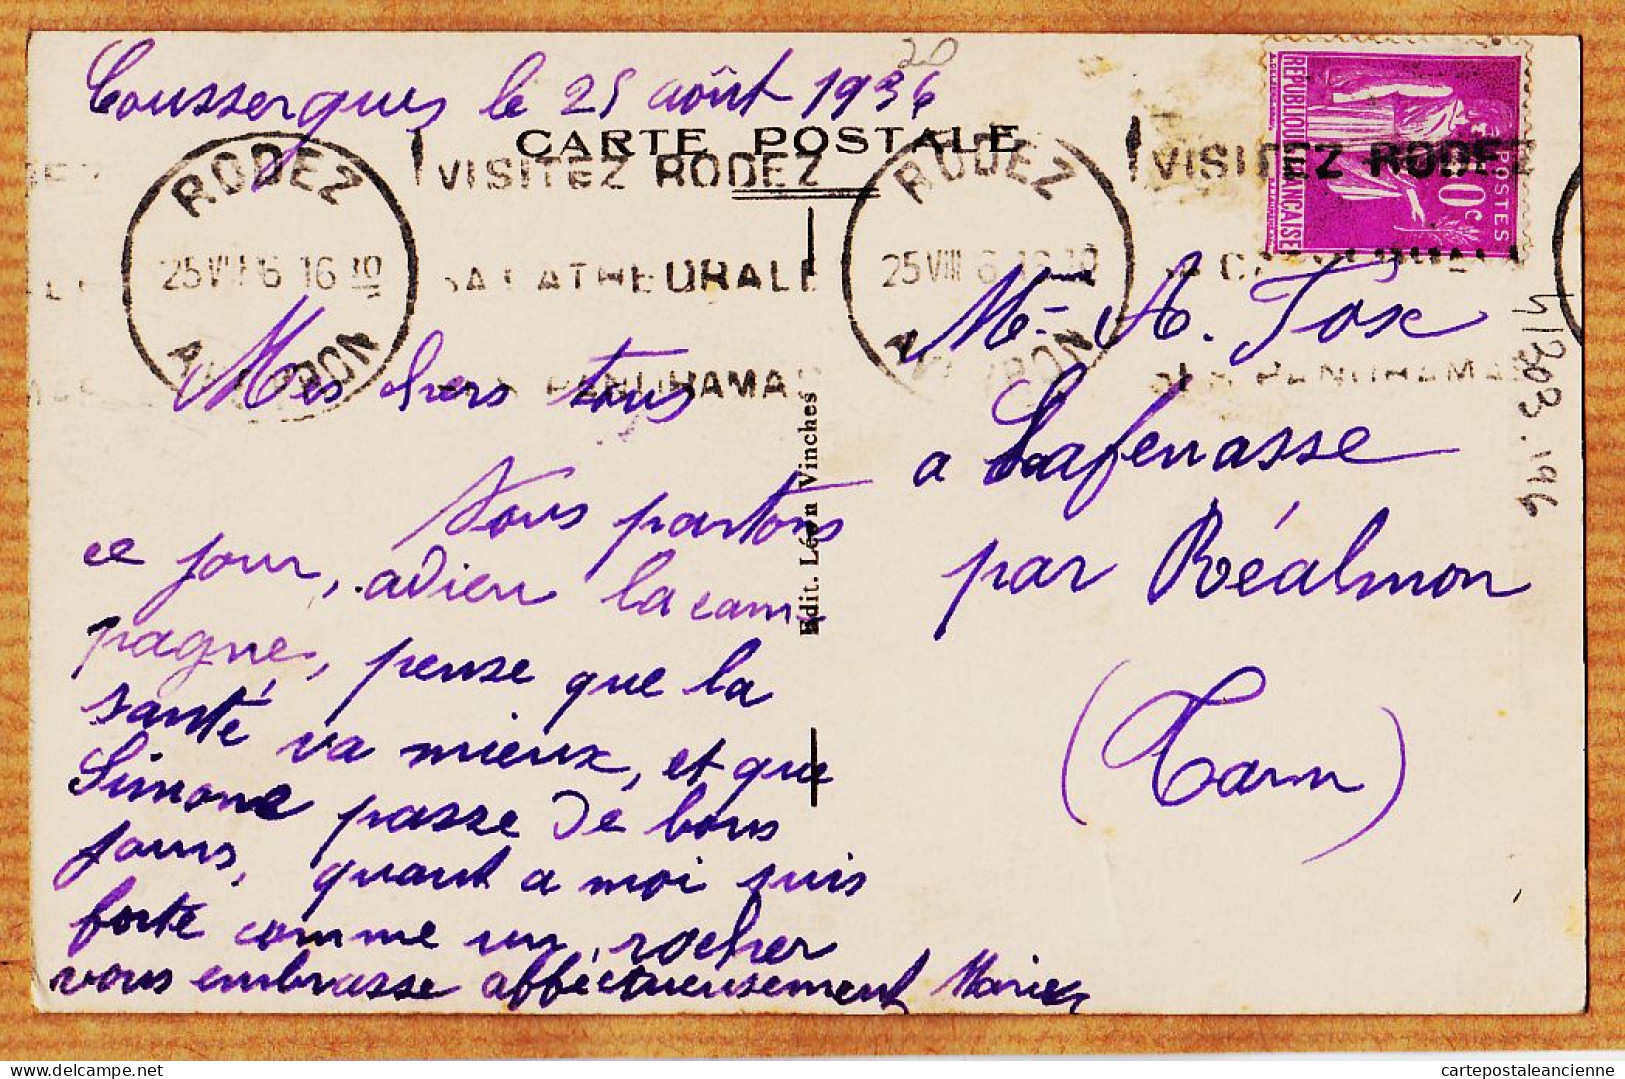 20
Coussergues le 25 août 1936
CARTE POSTALE
RODEZ
25 VIII 36 16 30
AVEYRON
VISITEZ RODEZ
SA CATHEDRALE
PANORAMAS
RODEZ
25 VIII 36 16 30
AVEYRON
VISITEZ RODEZ
SA CATHEDRALE
SES PANORAMAS
REPUBLIQUE FRANÇAISE
POSTES
Mes chers tous
Nous partons
ce jour, adieu la cam-
pagne, pense que la
santé va mieux, et que
Simone passe de bons
jours, quant a moi suis
forte comme un rocher
vous embrasse affectueusement Marie
Edit. Léon Vinches
Mme A. Tose
a Lafenasse
par Réalmont
(Tarn)
cartepostaleancienne.com